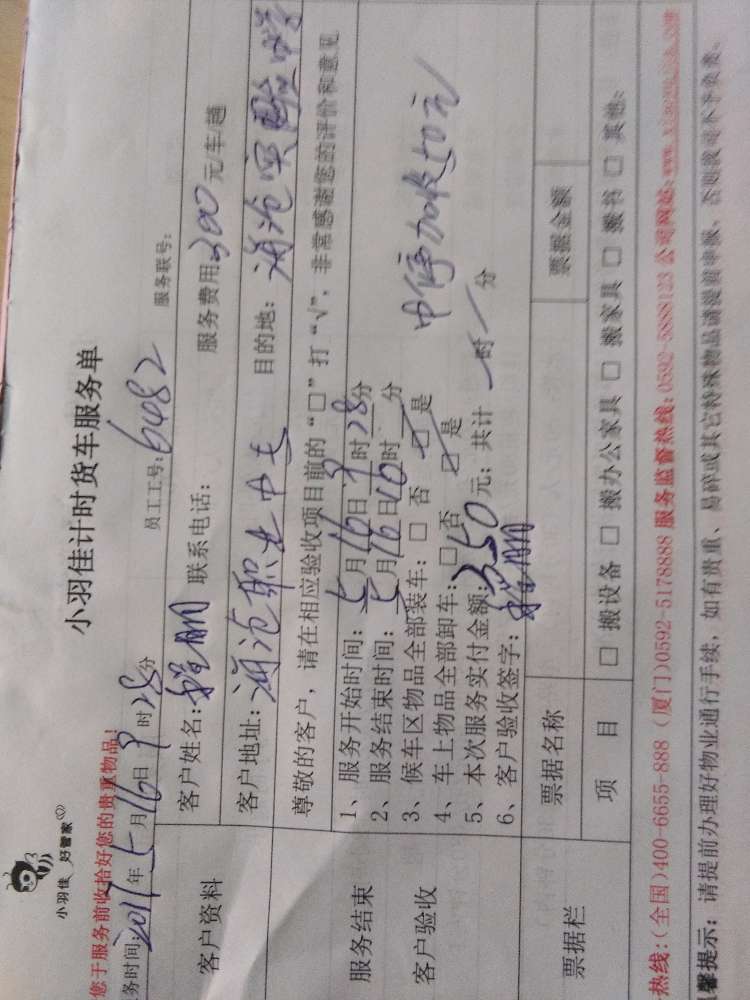 小羽佳 好管家
小羽佳计时货车服务单
您于服务前收拾好您的贵重物品!
务时间:2017年5月16日9时28分 员工工号:6482 服务联号:
客户资料
客户姓名: 联系电话: 服务费用300元/车/趟
客户地址:海沧职业中专 目的地:海沧实验中学
服务结束
客户验收
尊敬的客户,请在相应验收项目前的“□”打“√”,非常感谢您的评价和意见
1、服务开始时间:5月16日9时28分
2、服务结束时间:5月16日10时 分
3、候车区物品全部装车:□ 否 □ 是
4、车上物品全部卸车:□ 否 □ 是
中停加收50元
5、本次服务实付金额:350元;共计 时 分
6、客户验收签字:
票据栏
票据名称 票据金额
项 目 □ 搬设备 □ 搬办公家具 □ 搬家具 □ 搬书 □ 其他:
热线:(全国)400-6655-888 (厦门)0592-5178888 服务监督热线:0592-5888123 公司网站:
馨提示:请提前办理好物业通行手续,如有贵重、易碎或其它特殊物品请提前申报,否则